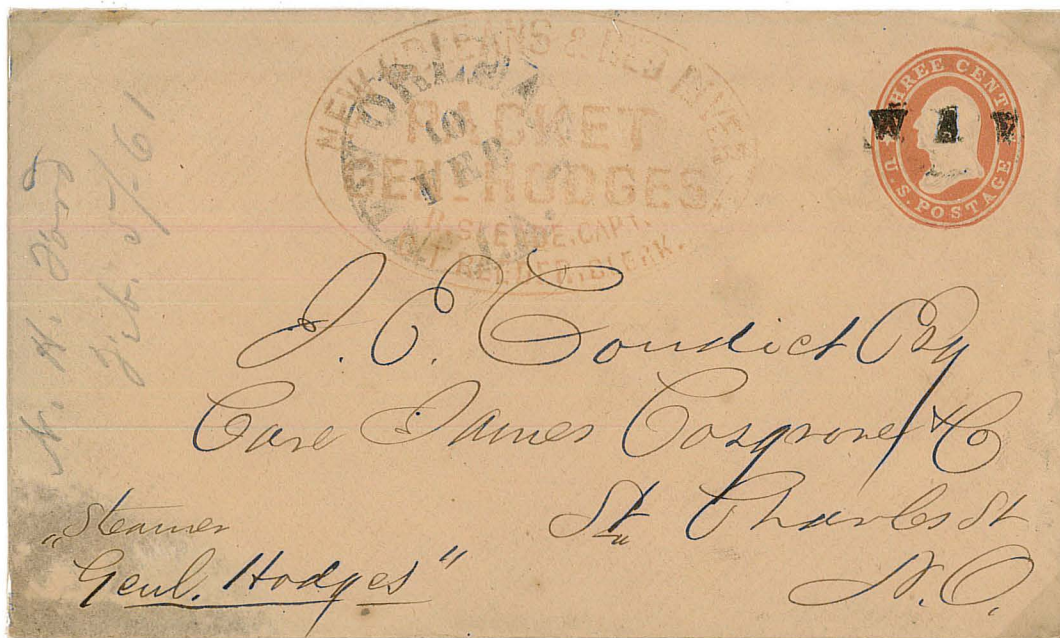 NEW ORLEANS & RED RIVER
PACKET
GEN. HODGES.
CAPT.
CLERK.
10
FEB
THREE CENTS
U.S. POSTAGE
WAY
N. H.
Feb. 5/61
J. C. Condict Esq
Care James Cosgrove & Co
St. Charles St
N.O.
„Steamer
Genl. Hodges"